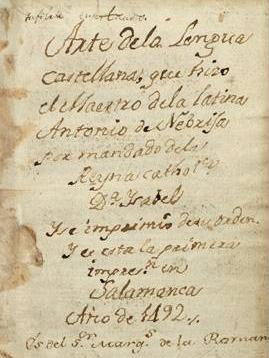 Arte de la Lengua
castellana, que hizo
el Maestro de la latina
Antonio de Nebrisa
por mandado de la
Reyna catholica
Dª. Ysabel
Y se imprimió de su orden.
Y es esta la primera
impresn. en
Salamanca
Año de 1492.
Es del Sr. Marqs. de la Roman